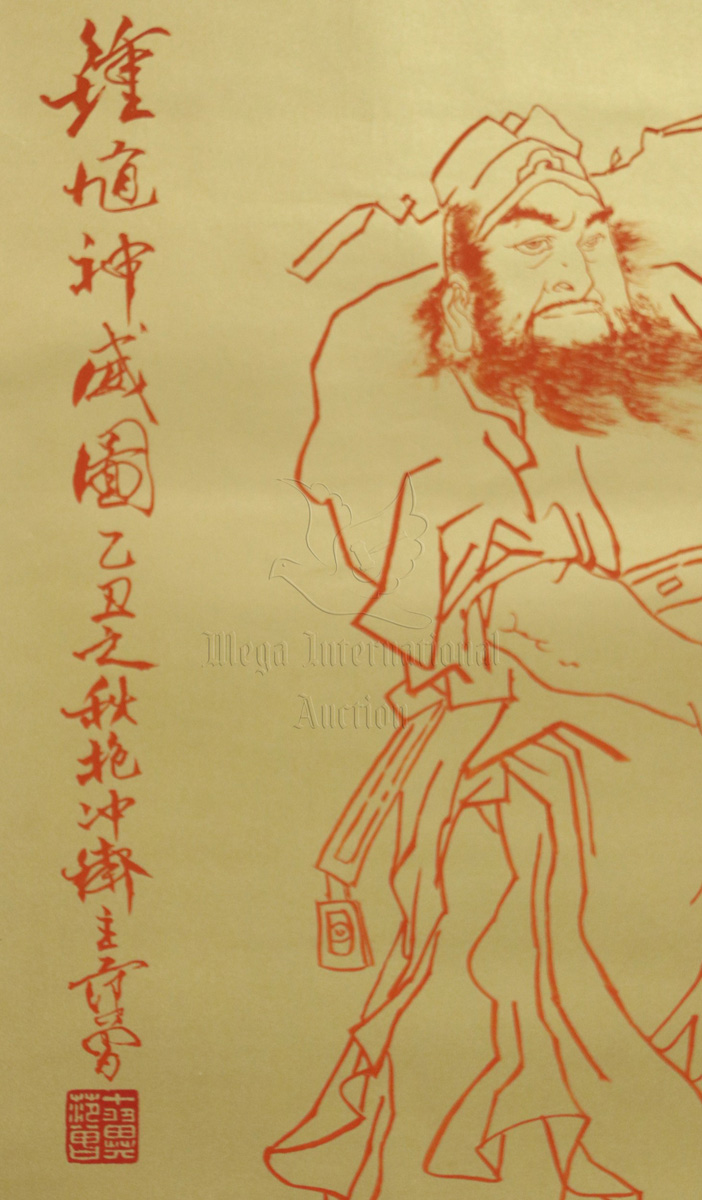 鍾馗神威圖乙丑之秋抱冲齋主范曾
十翼
范曾
Mega International
Auction